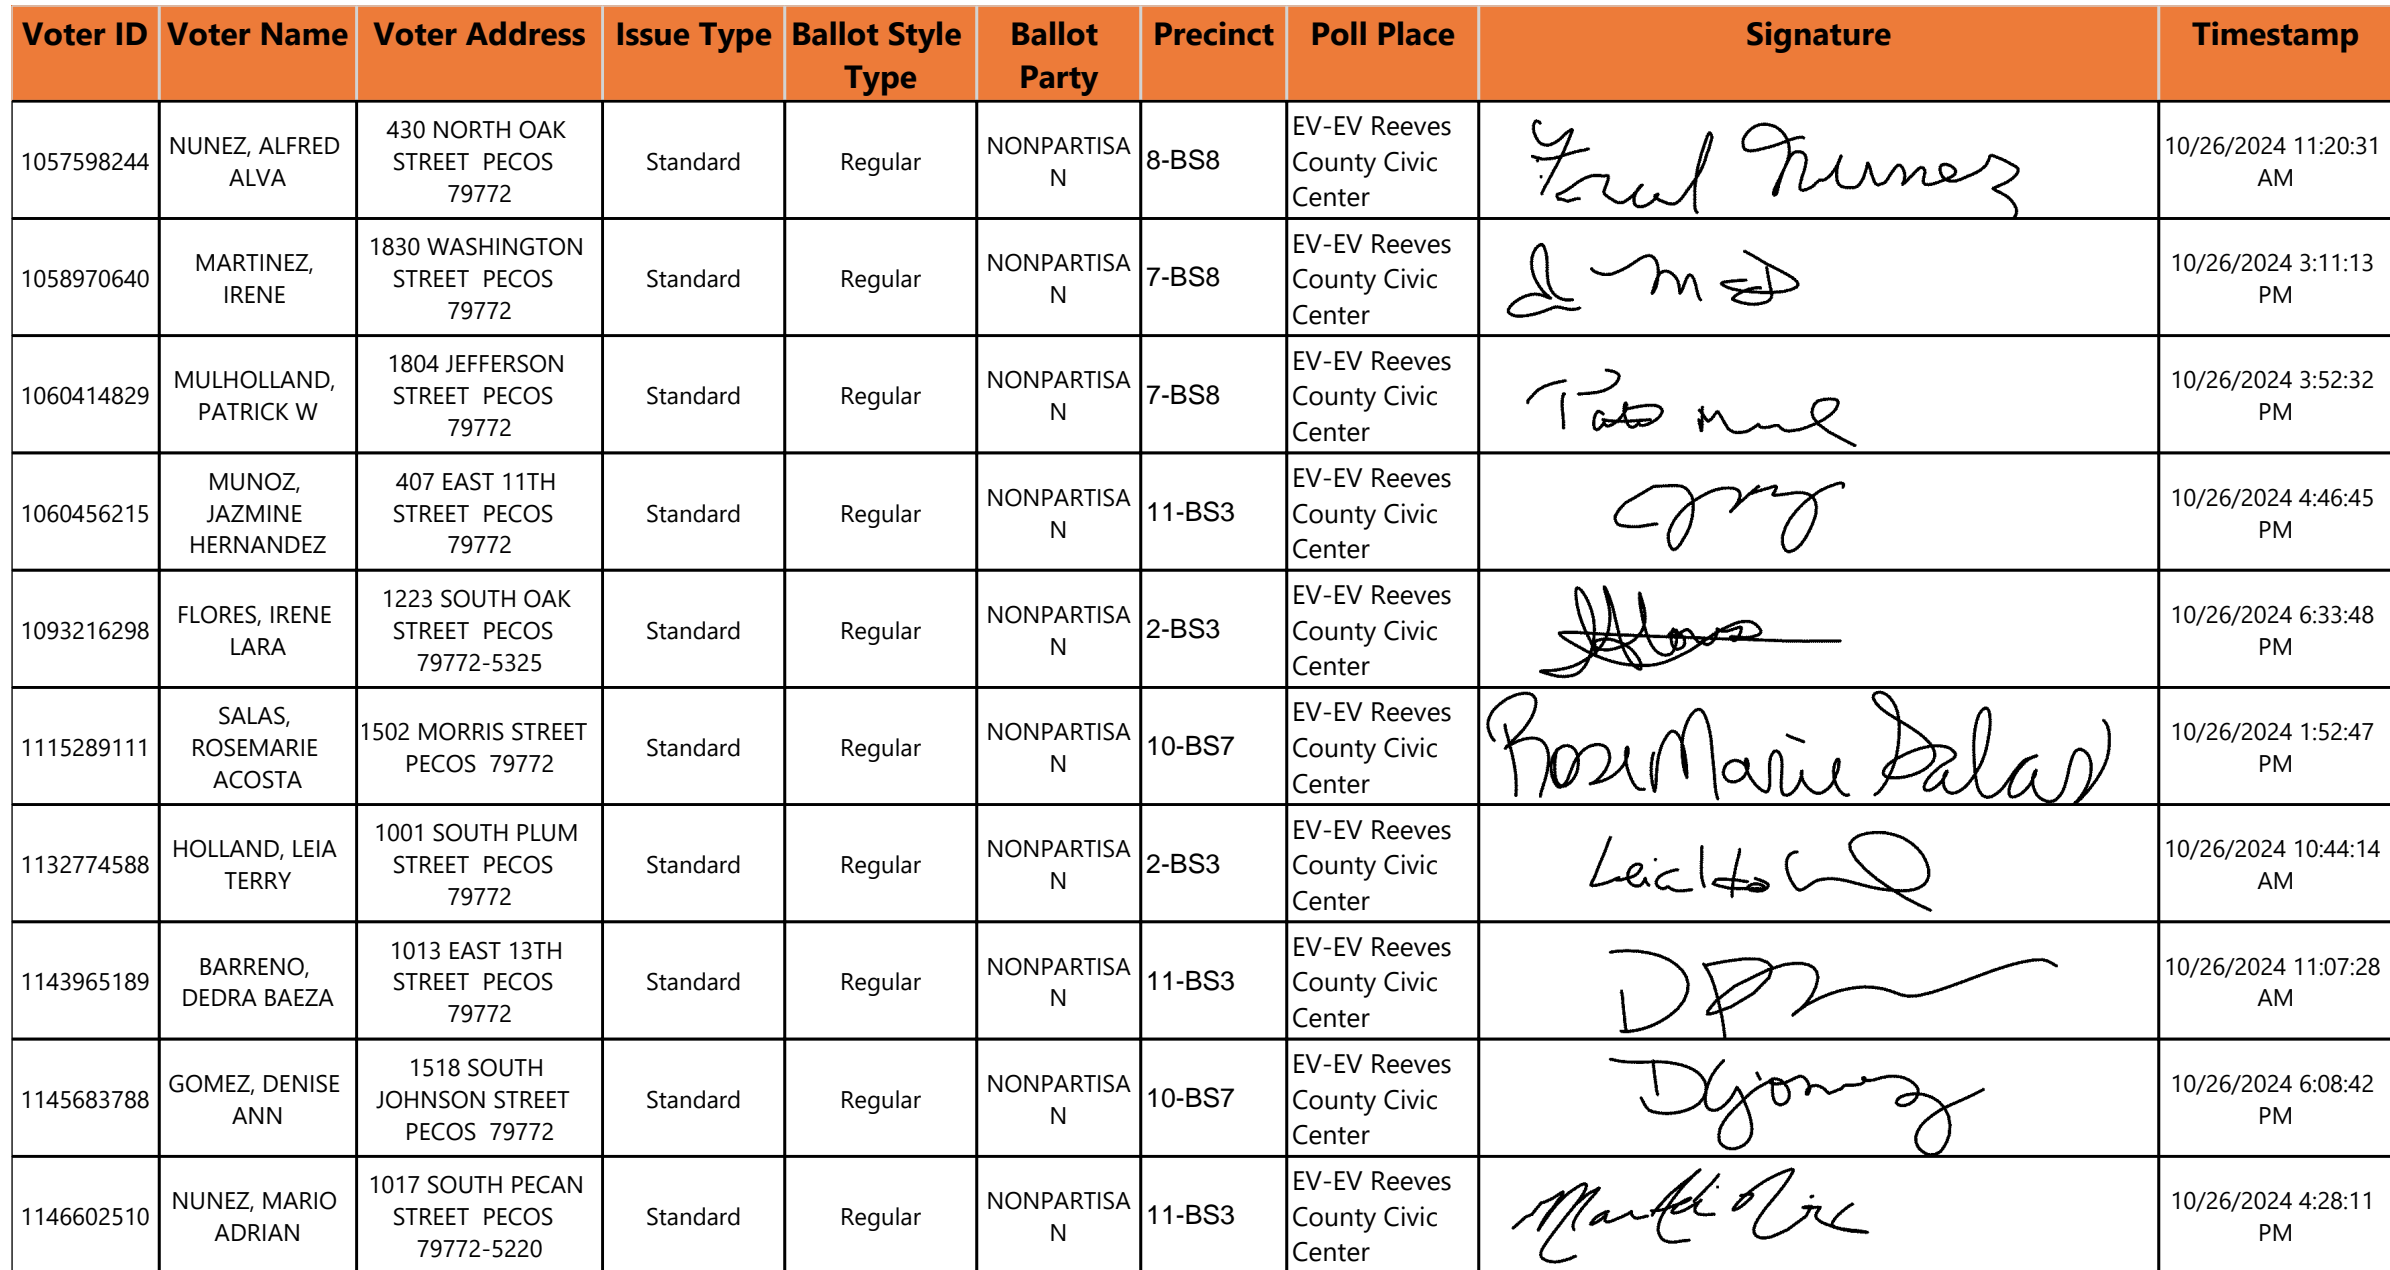 Voter ID Voter Name Voter Address Issue Type Ballot Style Type Ballot Party Precinct Poll Place Signature Timestamp
1057598244 NUNEZ, ALFRED ALVA 430 NORTH OAK STREET PECOS 79772 Standard Regular NONPARTISAN 8-BS8 EV-EV Reeves County Civic Center Nunez 10/26/2024 11:20:31 AM
1058970640 MARTINEZ, IRENE 1830 WASHINGTON STREET PECOS 79772 Standard Regular NONPARTISAN 7-BS8 EV-EV Reeves County Civic Center 10/26/2024 3:11:13 PM
1060414829 MULHOLLAND, PATRICK W 1804 JEFFERSON STREET PECOS 79772 Standard Regular NONPARTISAN 7-BS8 EV-EV Reeves County Civic Center 10/26/2024 3:52:32 PM
1060456215 MUNOZ, JAZMINE HERNANDEZ 407 EAST 11TH STREET PECOS 79772 Standard Regular NONPARTISAN 11-BS3 EV-EV Reeves County Civic Center 10/26/2024 4:46:45 PM
1093216298 FLORES, IRENE LARA 1223 SOUTH OAK STREET PECOS 79772-5325 Standard Regular NONPARTISAN 2-BS3 EV-EV Reeves County Civic Center 10/26/2024 6:33:48 PM
1115289111 SALAS, ROSEMARIE ACOSTA 1502 MORRIS STREET PECOS 79772 Standard Regular NONPARTISAN 10-BS7 EV-EV Reeves County Civic Center RoseMarie Salas 10/26/2024 1:52:47 PM
1132774588 HOLLAND, LEIA TERRY 1001 SOUTH PLUM STREET PECOS 79772 Standard Regular NONPARTISAN 2-BS3 EV-EV Reeves County Civic Center Leia 10/26/2024 10:44:14 AM
1143965189 BARRENO, DEDRA BAEZA 1013 EAST 13TH STREET PECOS 79772 Standard Regular NONPARTISAN 11-BS3 EV-EV Reeves County Civic Center 10/26/2024 11:07:28 AM
1145683788 GOMEZ, DENISE ANN 1518 SOUTH JOHNSON STREET PECOS 79772 Standard Regular NONPARTISAN 10-BS7 EV-EV Reeves County Civic Center DGomez 10/26/2024 6:08:42 PM
1146602510 NUNEZ, MARIO ADRIAN 1017 SOUTH PECAN STREET PECOS 79772-5220 Standard Regular NONPARTISAN 11-BS3 EV-EV Reeves County Civic Center 10/26/2024 4:28:11 PM